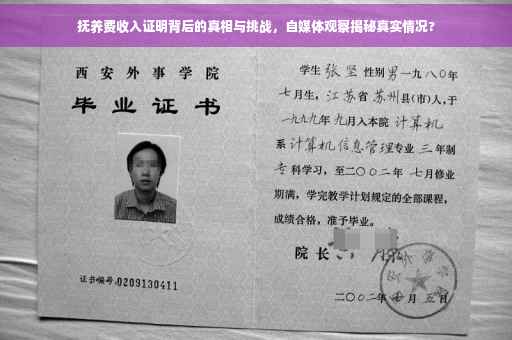 抚养费收入证明背后的真相与挑战，自媒体观察揭秘真实情况？
西安外事学院
毕业证书
证书编号:0209130411
学生 张坚 性别男一九八〇年
七月生，江苏省苏州县(市)人,于
一九九九年九月入本院 计算机
系计算机信息管理专业三年制
专科学习，至二〇〇二年七月修业
期满，学完教学计划规定的全部课程，
成绩合格，准予毕业。
院长
二〇〇二年 月五日